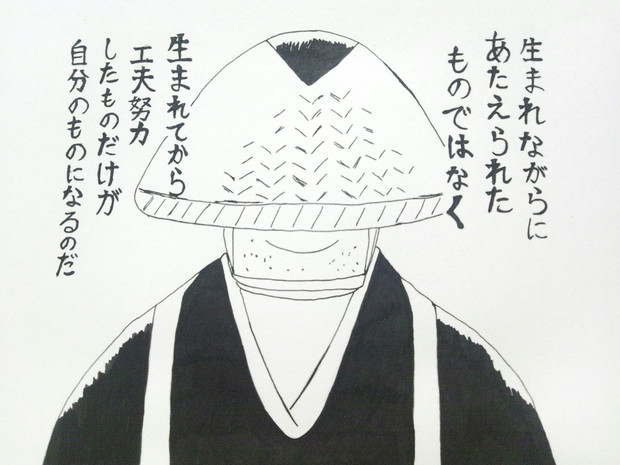 生まれながらに
あたえられた
ものではなく
生まれてから
工夫努力
したものだけが
自分のものになるのだ